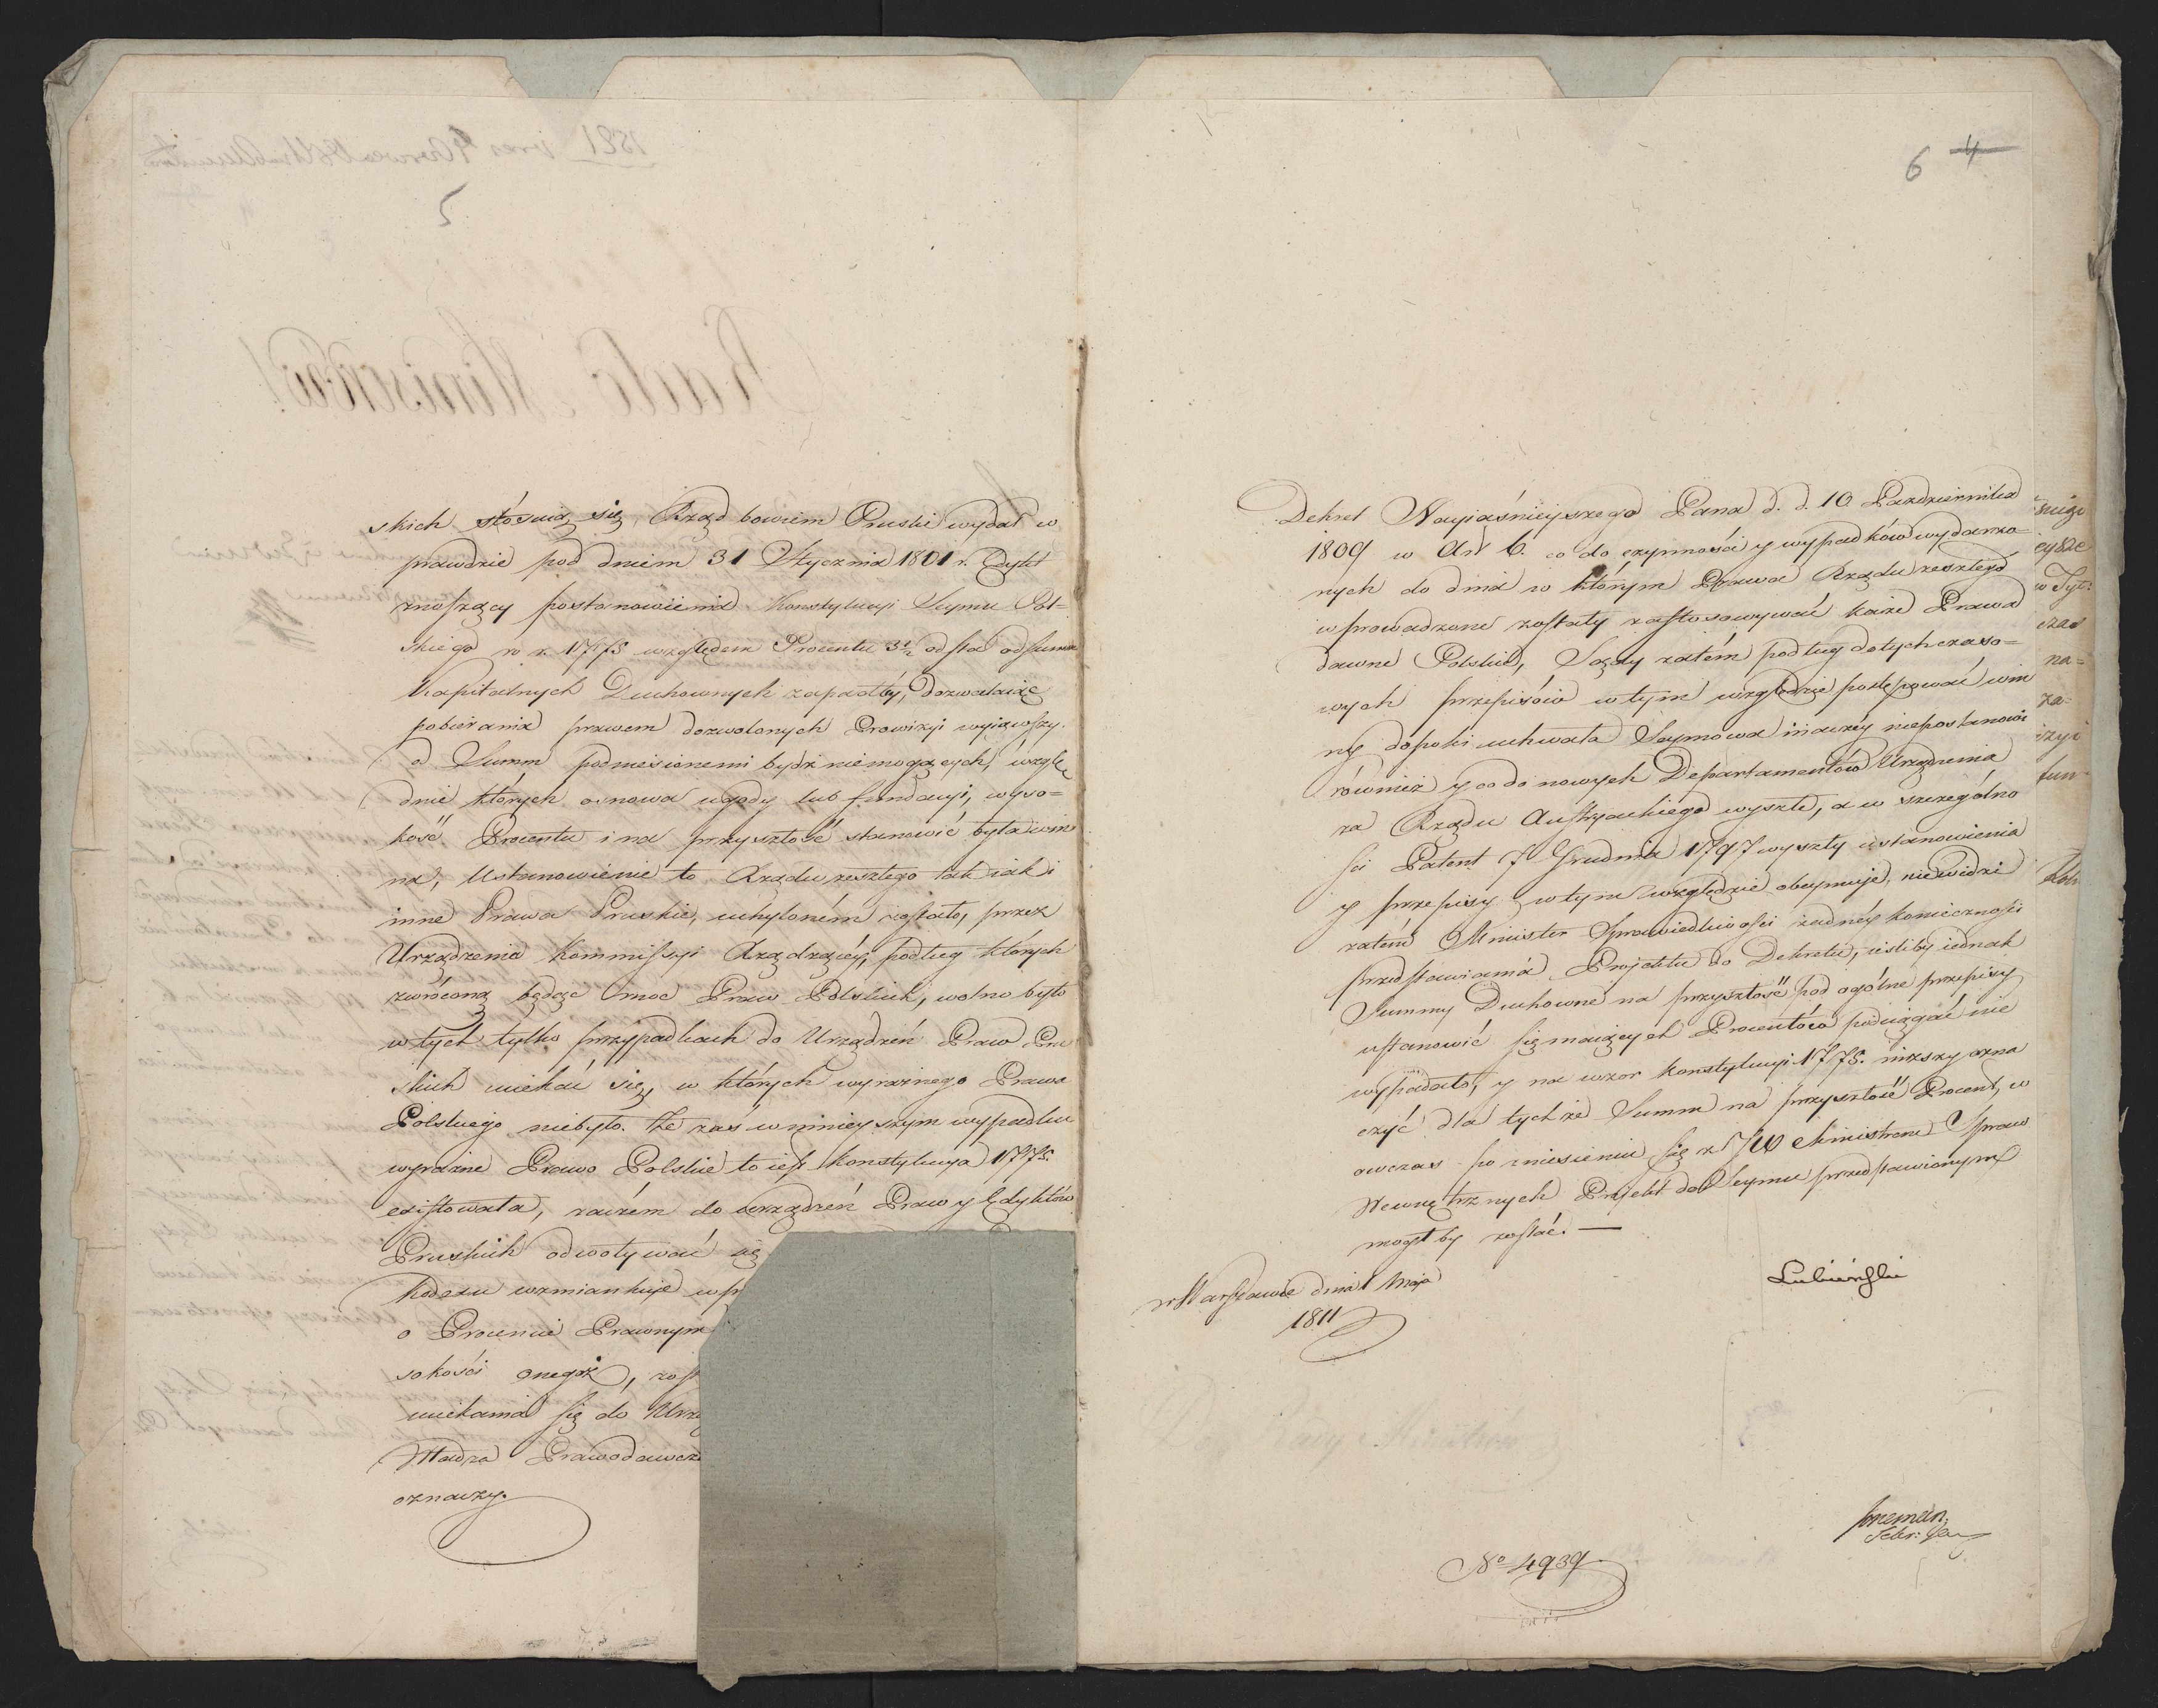 skich stósuią się, Rząd bowiem Pruski wydał w
prawdzie pod dniem 31 Stycznia 1801 r. Edykt
znoszący postanowienia Konstytucyi Seymu Pol-
skiego w r. 1775 względem Procentu 3½ od sta od summ
Kapitalnych Duchownych zapadłey, dozwalaiąc
pobierania prawem dozwolonych Prowizyi wyiąwszy
od Summ podniesionemi bydź niemogących, wzglę
dnie których osnowa ugody lub fundacyi, wyso-
kość Procentu i na przyszłość stanowić była win
na, Ustanowienie to Rządu zeszłego tak iak i
inne Prawa Pruskie, uchyloném zostało, przez
Urządzenia Kommissyi Rządzącéy, podług których
zwróconą będąc moc Praw Polskich, wolno było
w tych tylko przypadkach do Urządzeń Praw Pru
skich uciekać się, w których wyraźnego Prawa
Polskiego niebyło. Że zaś w ninieyszym wypadku
wyraźne Prawo Polskie to iest Konstytucya 1775.
existowała, zaczém do urządzeń Praw y Edyktów
Pruskich odwoływać się
Kodexu wzmiankuje w
o Procencie Prawnym
sokości onegoż,
uciekania się do
Władza Prawodawcz
oznaczy.
6 4
Dekret Nayiaśnieyszego Pana d. d. 10 Października
1809 w Art 6. co do czynności y wypadków wydarzo-
nych do dnia w którym Prawa Rządu zeszłego
wprowadzone zostały zastosowywać każe Prawa
dawne Polskie, Sądy zatém podług dotychczaso-
wych przepisów w tym względzie postępować win
ny dopoki uchwała Seymowa inaczey niepostanowi
również y co do nowych Departamentów Urządzenia
za Rządu Austryackiego wyszłe, a w szczególno
ści Patent 7 Grudnia 1797 wyszły ustanowienia
y przepisy w tym względzie obeymuje, niewidzi
zatém Minister Sprawiedliwości żadnéy konieczności
przedstawiania Projektu do Dekretu, iesliby iednak
Summy Duchowne na przyszłość pod ogólne przepisy
ustanowić się maiących Procentów podciągać nie
wypadało, y na wzor Konstytucyi 1775. niższy ozna
czyć dla tychże Summ na przyszłość Procent, w
owczas po zniesieniu się z JW Ministrem Spraw
Wewnętrznych Projekt do Seymu przedstawionym
mogłby zostać. —
w Warszawie dnia 1 Maja
1811
Lubieński
No 4939